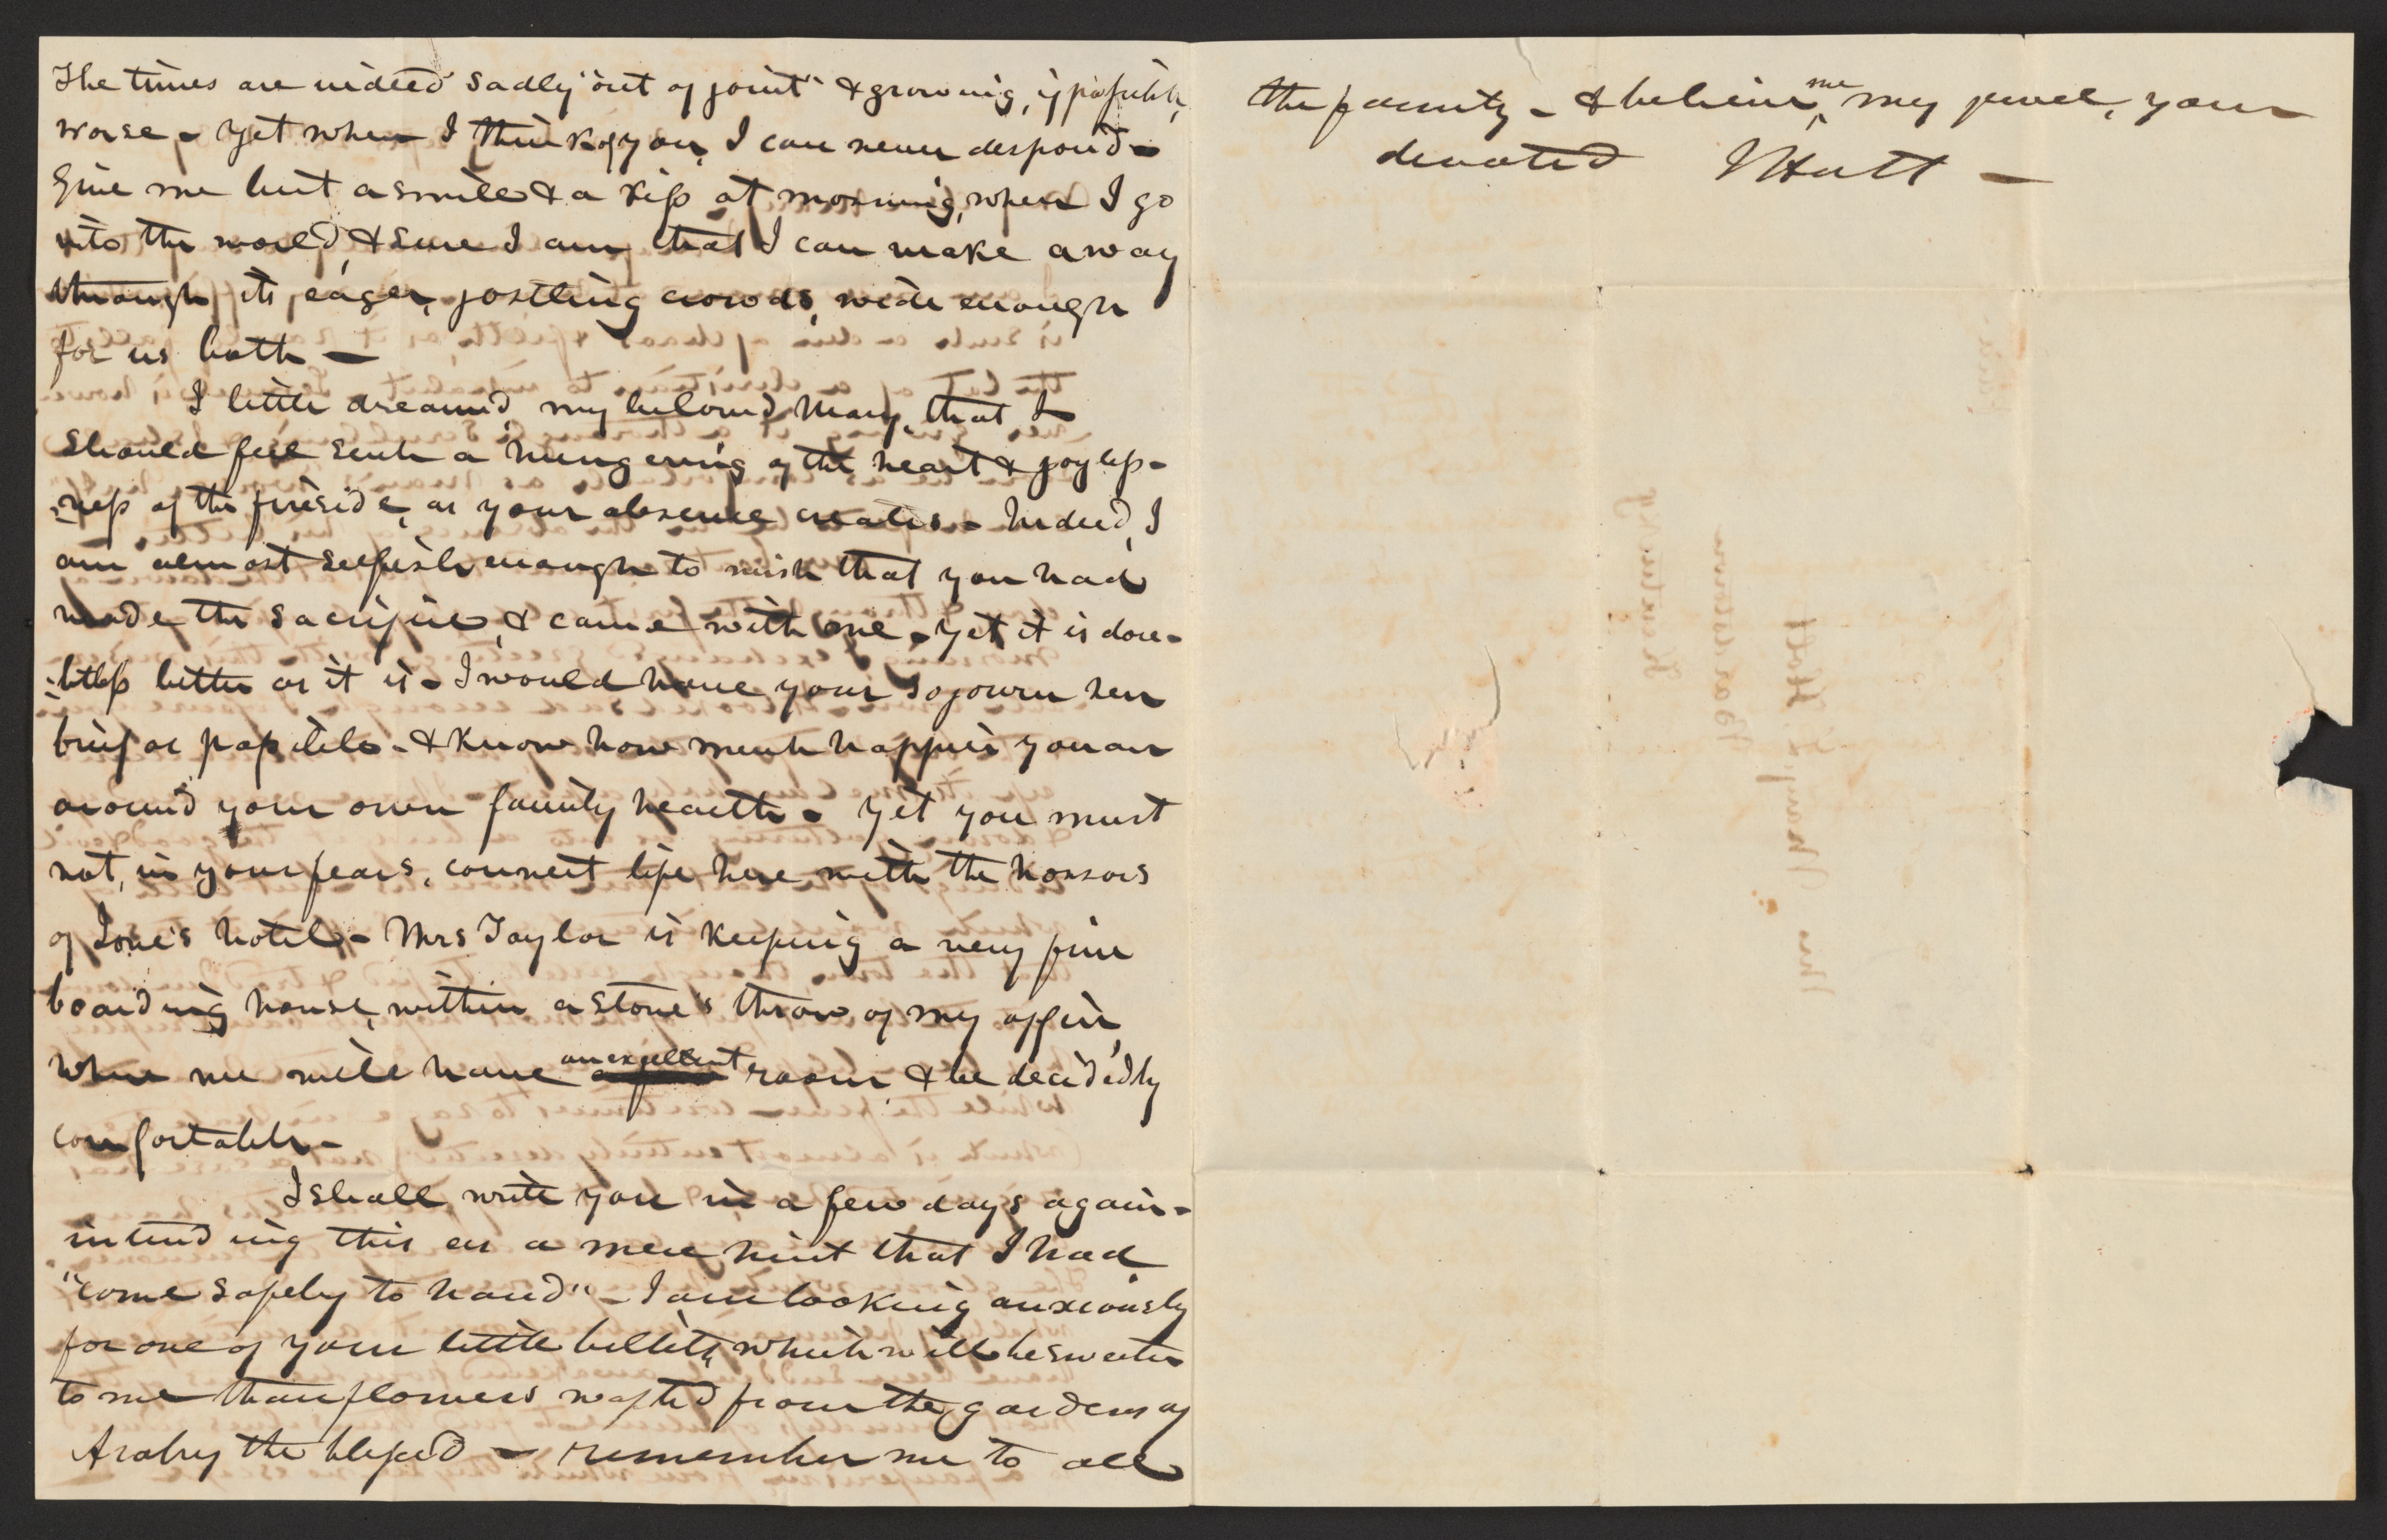 The times are indeed sadly "out of joint" & growing, if possible,
worse - yet when I think of you, I can never despond -
Give me but a smile & a kiss at morning, when I go
into the world, & sure I am that I can make a way
through its eager, jostling crowds, wide enough
for us both -
I little dreamed, my beloved Mary, that I
should feel such a hungering of the heart & joyless-
-ness of the fireside, as your absence creates - Indeed, I
am almost selfish enough to wish that you had
made the sacrifice, & came with me - yet it is dou-
-btless better as it is - I would have your sojourn here
brief as possible - & know how much happier you are
around your own family hearth - yet you must
not, in your fears, connect life here with the horrors
of Jone's hotel - Mrs Taylor is keeping a very fine
boarding house, within a stone's throw of my office,
where we will have an excellent room & be decidedly
comfortable -
I shall write you in a few days again -
intending this as a mere hint that I had
"come safely to hand" - I am looking anxiously
for one of your little billets, which will be sweeter
to me than flowers wafted from the gardens of
Araby the blessed - remember me to all
the family - & believe me, my jewel, your
devoted J Holt -
Mrs Mary L. Holt